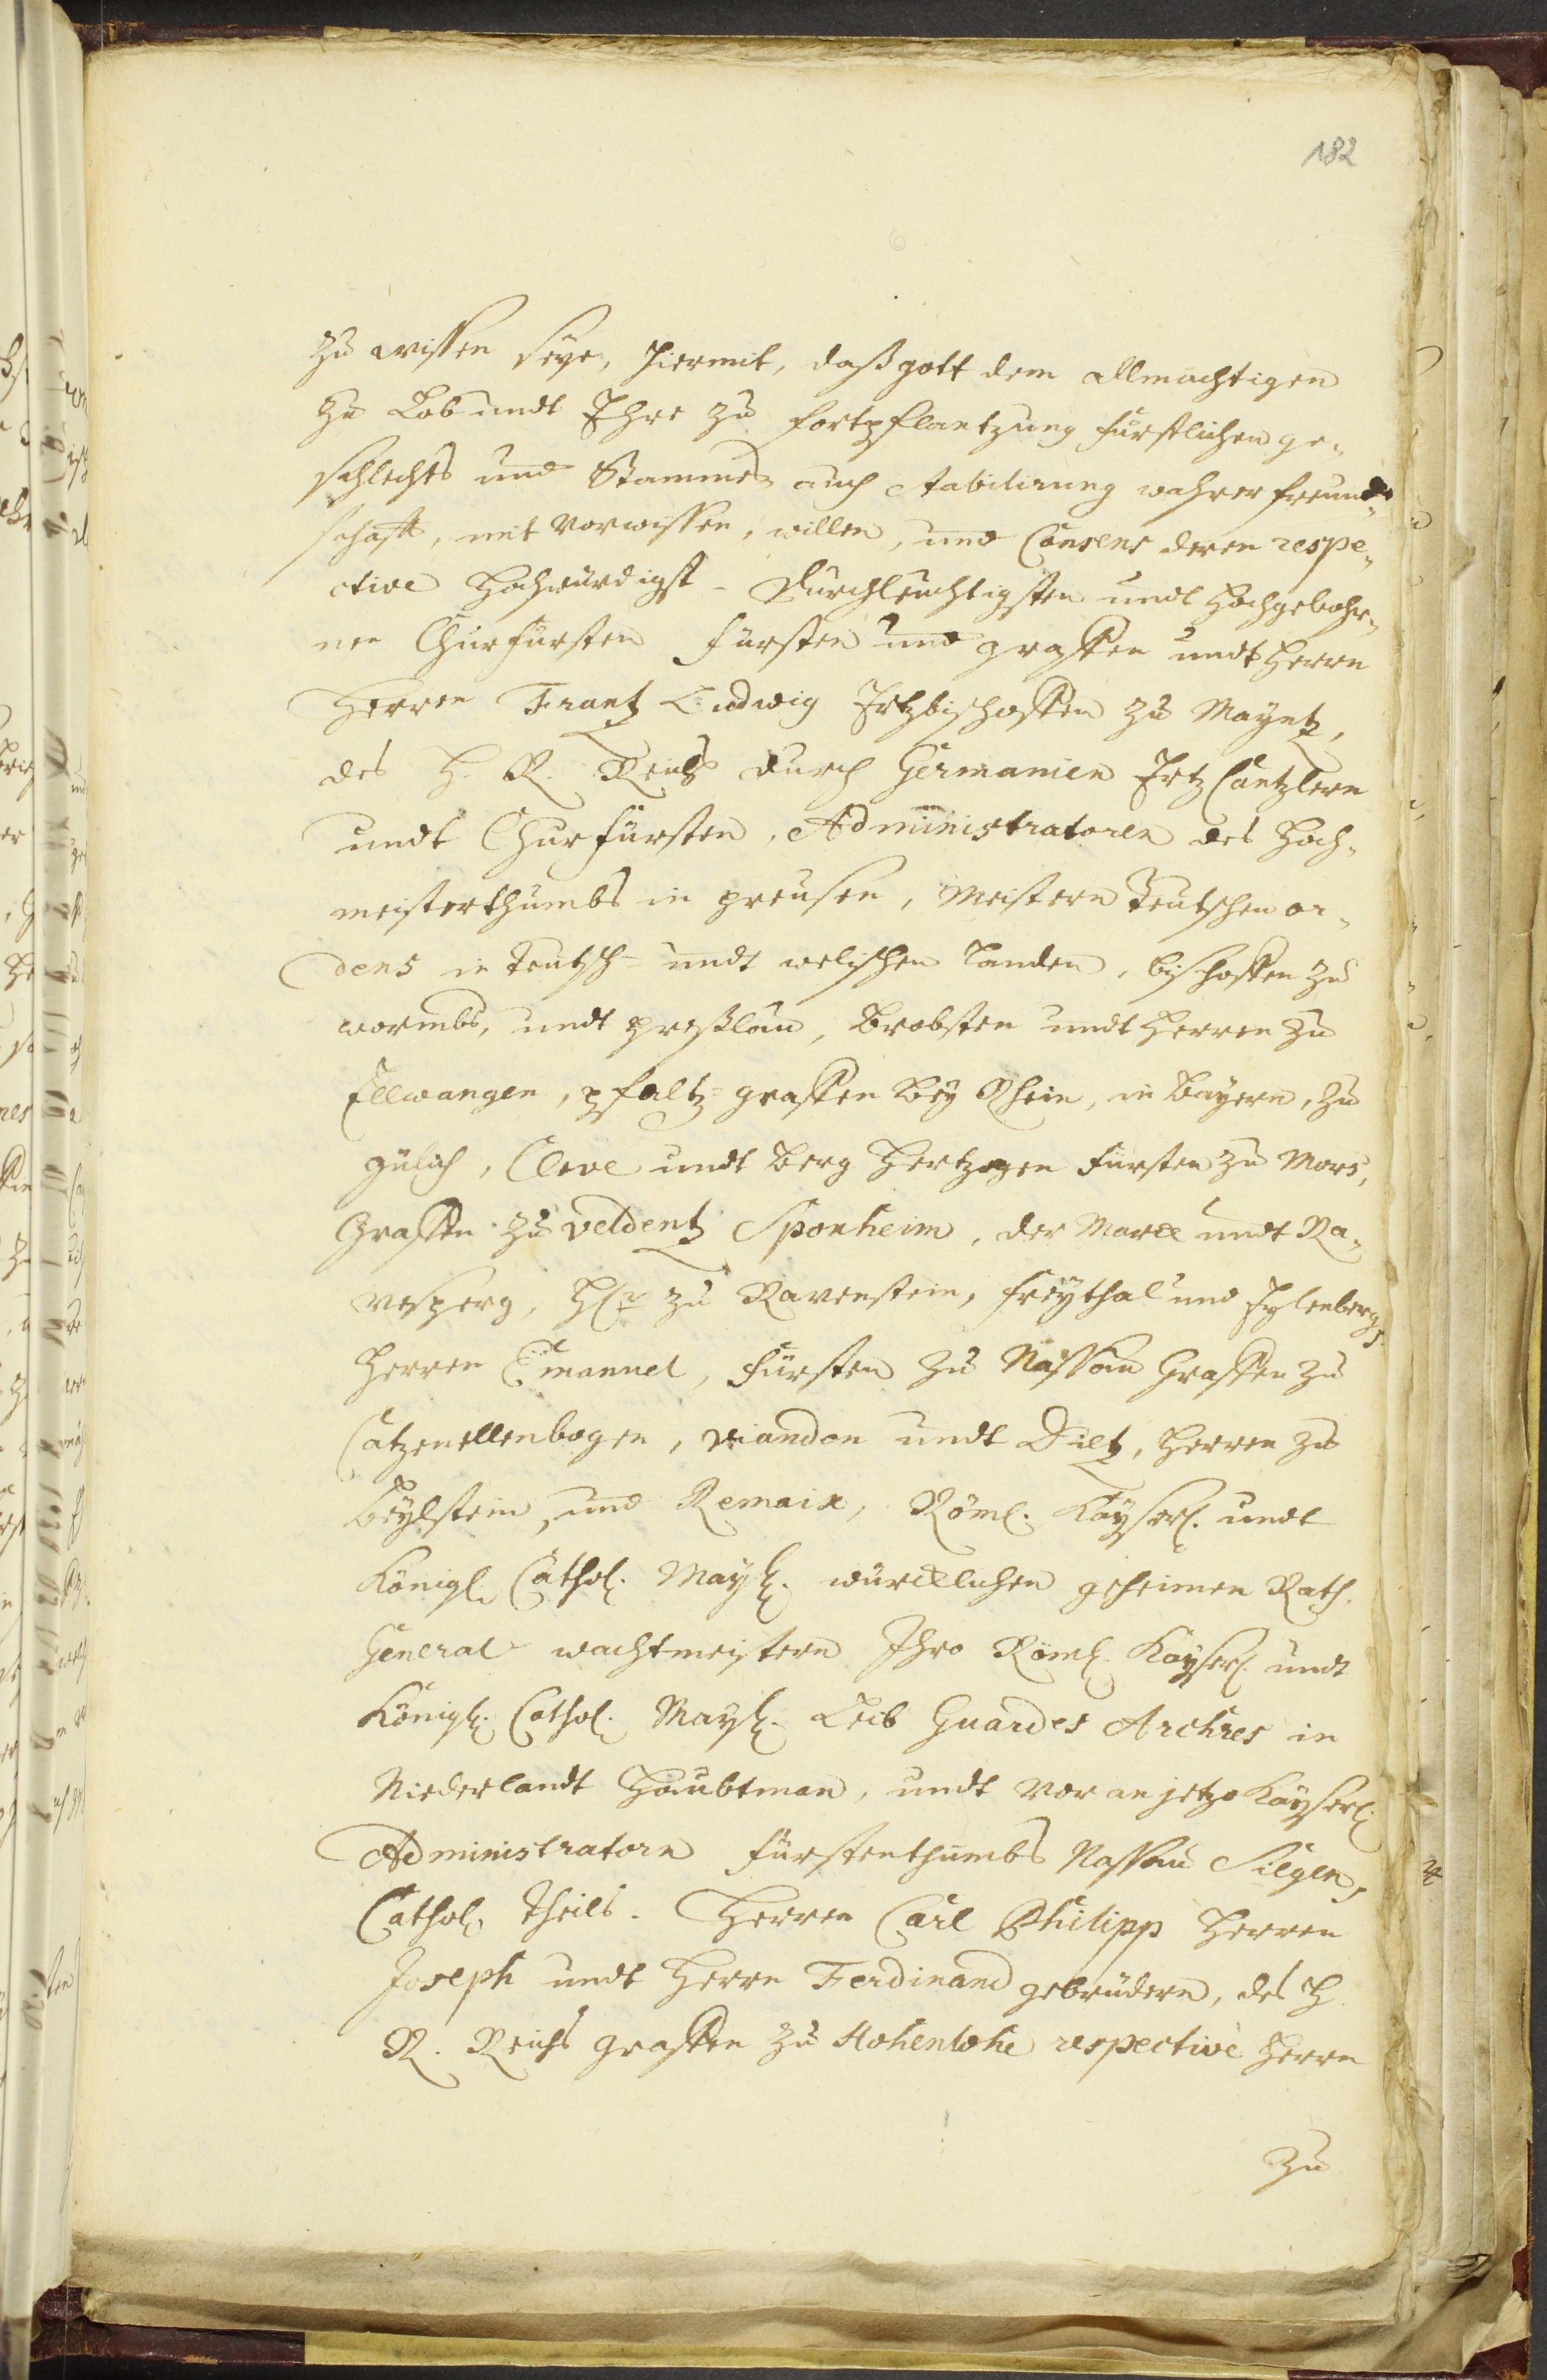 182
zu wissen seye, hiermit, daß gott dem allmächtigen
zu Lob undt Ehre zu fortpflantzung fürstlichen ge-
schlechts und Stammes auch stabilirung wahrer freund-
schafft, mit vorwissen, willen, und Consens deren respe-
ctive Hochwürdigst- Durchleuchtigsten undt Hochgebohr-
nen Churfürsten Fürsten und graffen undt Herrn
Herren Frantz Ludwig Ertzbischoffen zu Mayntz,
des H. R. Reichs durch Germanien Ertz Cantzlern
undt Churfürsten, Administratoren des Hoch-
meisterthumbs in preusen, Meistern Teutschen or-
dens in Teutsch- undt welischen Landen, bischoffen zu
wormbs, undt preßlau, Brobsten undt Herren zu
Ellwangen, pfaltz-graffen Bey Rhein, in Bayern, zu
gülich, Cleve undt Berg Hertzogen Fürsten zu Mors,
Graffen zu Veldentz Sponheim, der Marck undt Ra-
vesperg, H. zu Ravenstein, freythal und
Herren Emanuel, Fürsten zu Nassau Graffen zu
Catzenellenbogen, vianden undt Dietz, Herren zu
Beylstein, und Remaix, Röml. Kayserl. undt
Königl. Cathol. Mayst. würcklichen geheimen Rath,
General wachtmeistern Ihro Röml. Kayserl. undt
Königl. Cathol. Mayst. Leib Guardes Archres in
Niederlandt Haubtman, undt vor anjetzo Kayserl.
Administratorn Fürstenthumbs Nassau Siegen,
Cathol. theils. Herren Carl Philipp Herren
Joseph undt Herrn Ferdinand gebrüdern, des H
R. Reichs graffen zu Hohenlohe respectivè Herrn
zu